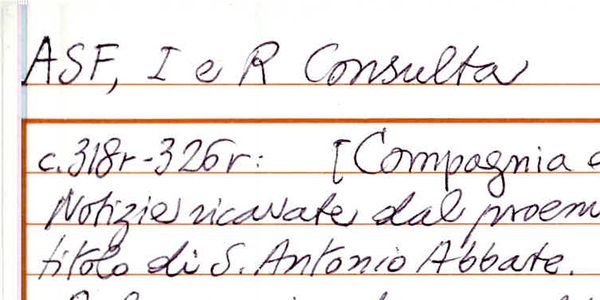 ASF, I e R Consulta
c.318r-326r: [Compagnia d
Notizie ricavate dal proem
titolo di S. Antonio Abbate.